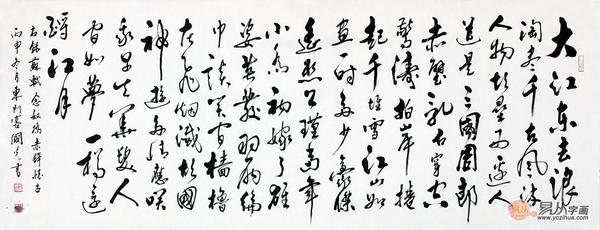 大江东去浪
淘尽千古风流
人物故垒西边人
道是三國周郎
赤壁乱石穿空
驚涛拍岸捲
起千堆雪江山如
画一时多少豪傑
遥想公瑾当年
小乔初嫁了雄
姿英发羽扇纶
巾谈笑间樯橹
灰飞烟灭故國
神游多情应笑
我早生华髮人
间如梦一樽还
酹江月
右録蘇軾念奴娇赤壁懷古
丙申冬月 書
易从字画
www.yczihua.com